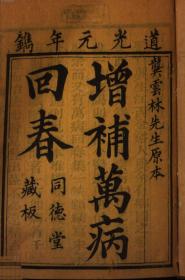 道光元年鐫
龔雲林先生原本
增補萬病
回春
同德堂
藏板